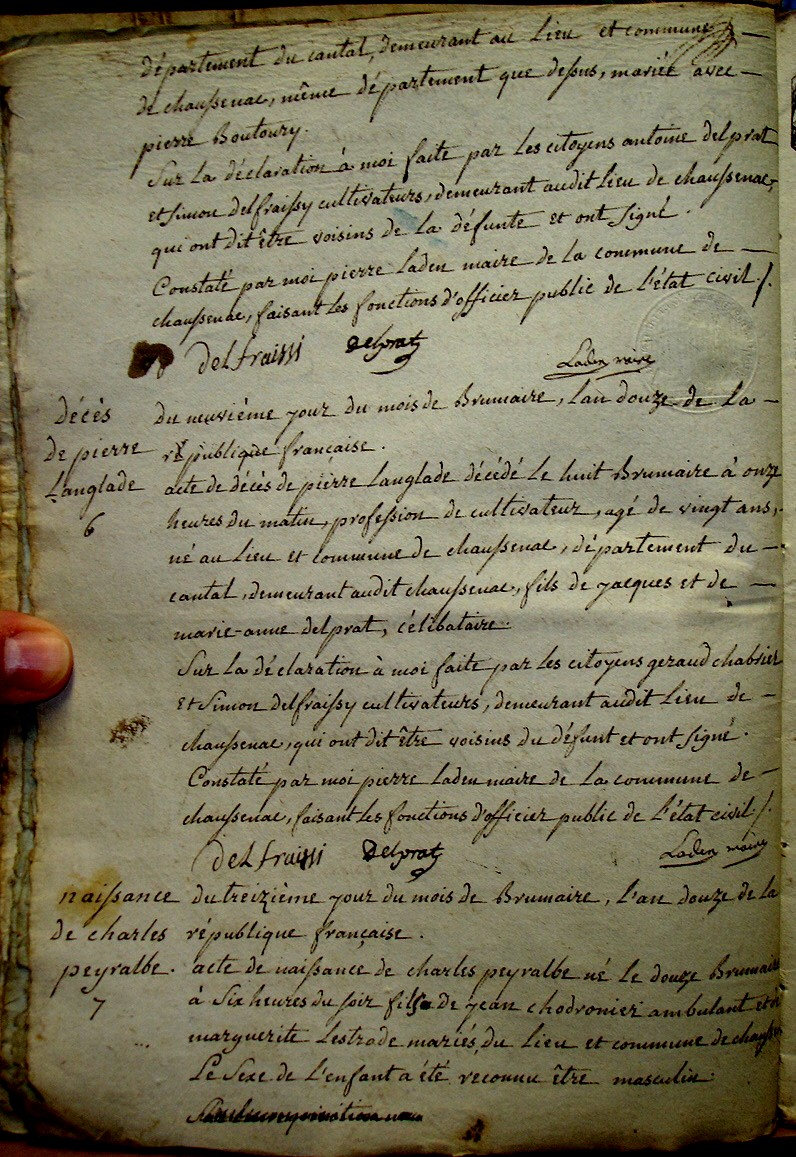 département du cantal, demeurant au Lieu et commune
de chaussenac, même département que dessus, mariée avec
pierre Boutoury.
Sur La déclaration à moi faite par Les citoyens antoine delprat
et Simon delfraissy cultivateurs, demeurant audit Lieu de chaussenac,
qui ont dit être voisins de La défunte et ont Signé.
Constaté par moi pierre Laden maire de La commune de
chaussenac, faisant Les fonctions d'officier public de L'état civil ./.
delfraissi delprat Laden maire
décès
de pierre
Langlade
6
du neuvième jour du mois de Brumaire, L'an douze de La
république française.
acte de décès de pierre Langlade décédé Le huit Brumaire à onze
heures du matin, profession de cultivateur, agé de vingt ans,
né au Lieu et commune de chaussenac, département du
cantal, demeurant audit chaussenac, fils de jacques et de
marie-anne delprat, célibataire.
Sur La déclaration à moi faite par Les citoyens geraud chabrier
Et Simon delfraissy cultivateurs, demeurant audit Lieu de
chaussenac, qui ont dit être voisins du défunt et ont Signé.
Constaté par moi pierre Laden maire de La commune de
chaussenac, faisant Les fonctions d'officier public de L'état civil ./.
delfraissi delprat Laden maire
naissance
de charles
peyralbe.
7
du treizième jour du mois de Brumaire, L'an douze de La
république française.
acte de naissance de charles peyralbe né Le douze Brumaire
à Six heures du soir fils de jean chodronier ambulant et de
marguerite Lestrade mariés, du Lieu et commune de
Le Sexe de L'enfant a été reconnu être masculin